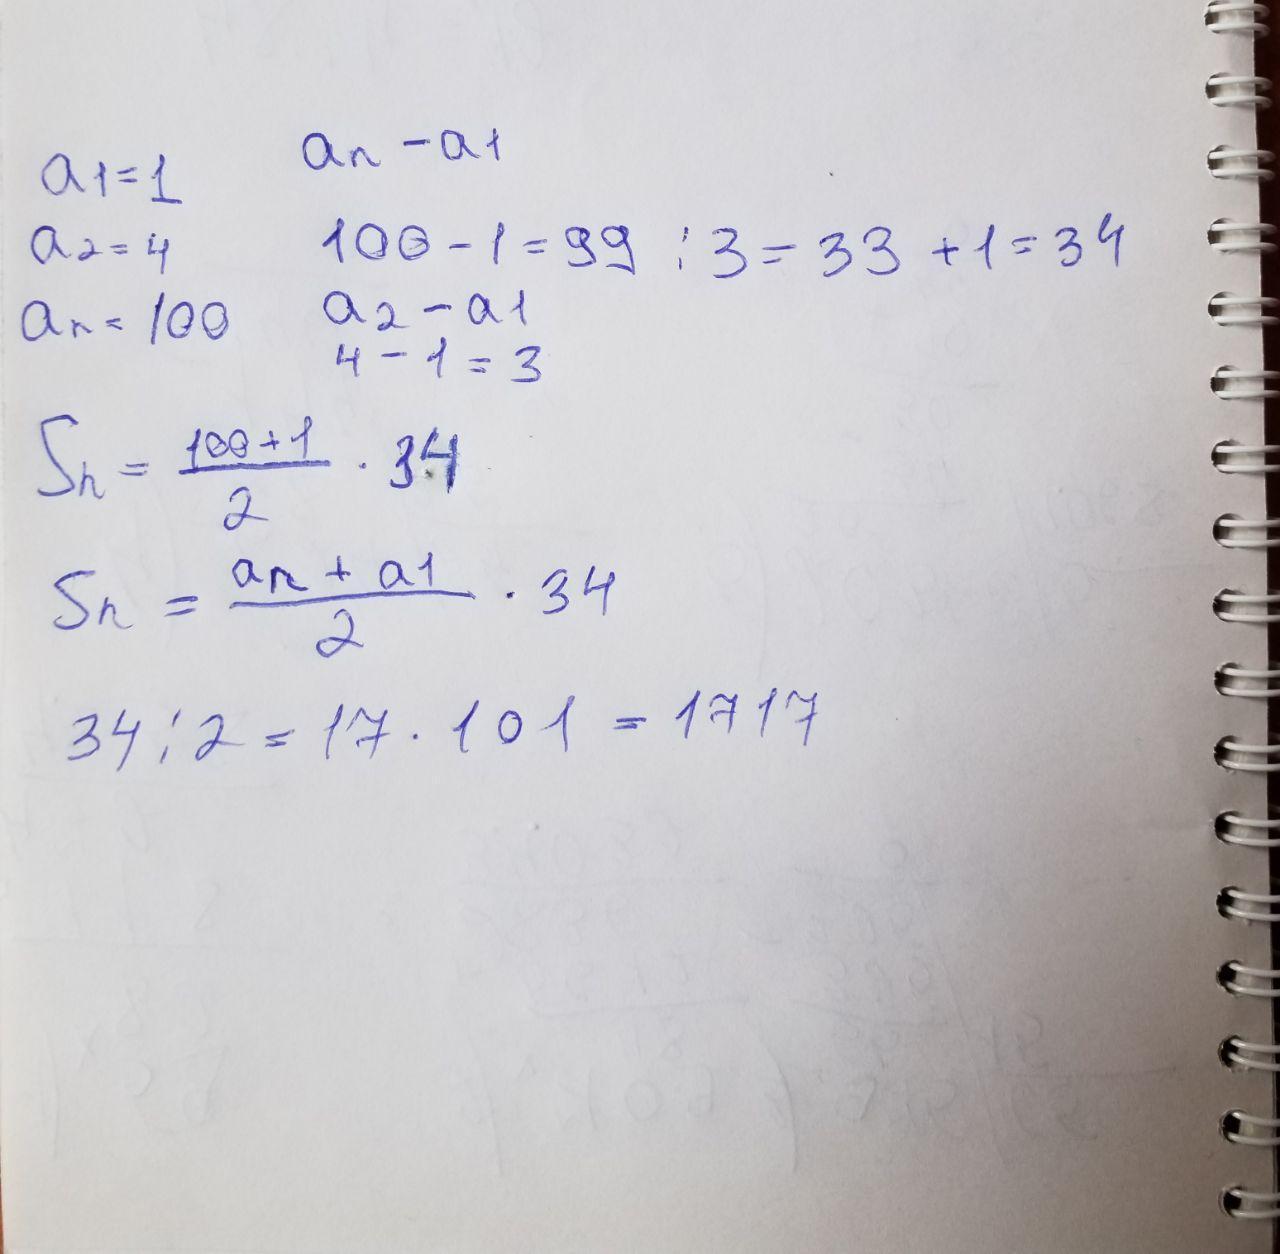 a1=1
an-a1
a2=4
100-1=99 :3=33+1=34
an=100
a2-a1
4-1=3
Sn=(100+1)/2·34
Sn=(an+a1)/2·34
34:2=17·101=1717